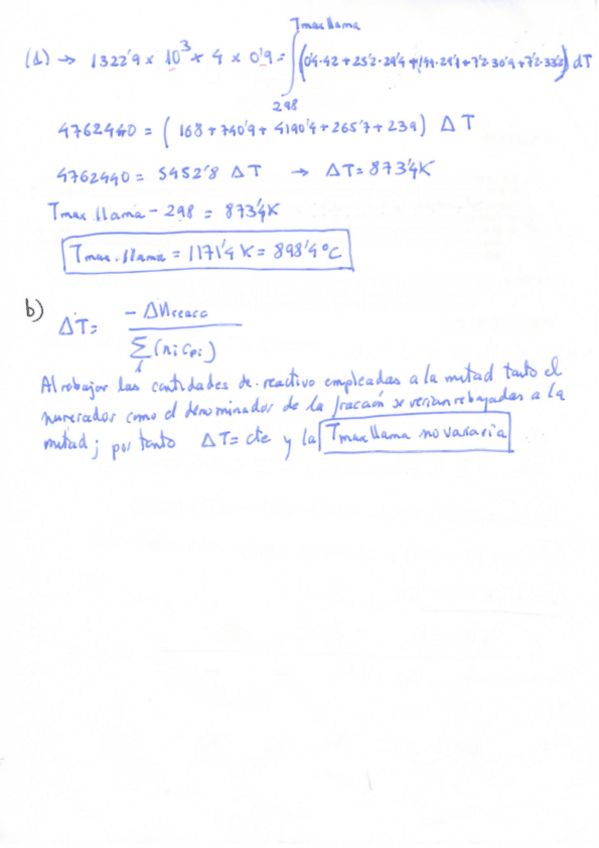 Tmax llama
(1) → 1322'9 x 10³ x 4 x 0'9 = ∫ (0'4·42 + 25'2·29'4 + 144·29'1 + 7'2·36'9 + 7'2·33'2) dT
298
4762440 = ( 168 + 740'9 + 4190'4 + 265'7 + 239 ) ΔT
4762440 = 5452'8 ΔT → ΔT = 873'4K
Tmax llama - 298 = 873'4K
Tmax. llama = 1171'4 K = 898'4 ºC
b) ΔT = - ΔHreacc / Σi (ni cpi)
Al rebajar las cantidades de reactivo empleadas a la mitad tanto el
numerador como el denominador de la fracción se verían rebajadas a la
mitad; por tanto ΔT = cte y la Tmax llama no variaria